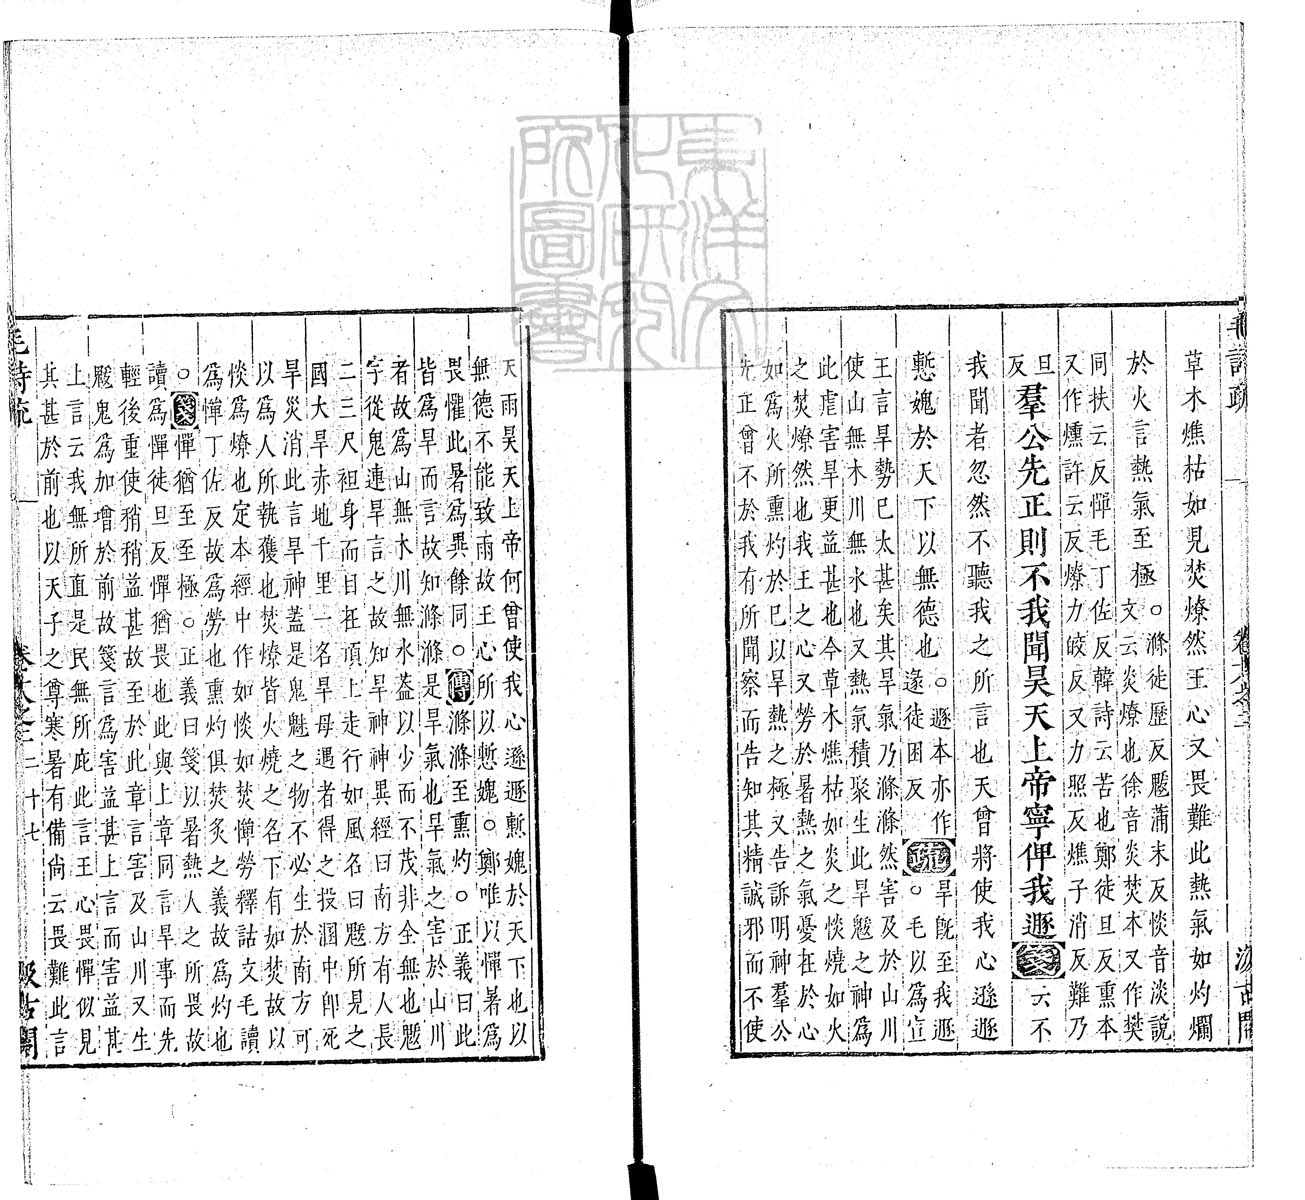 草木燋枯如見焚燎然王心又畏難此熱氣如灼爛
於火言熱氣至極
○滌徒歷反魃蒲末反惔音淡說
文云炎燎也徐音炎焚本又作樊
同扶云反憚毛丁佐反韓詩云苦也鄭徒旦反熏本
又作燻許云反燎力皎反又力照反燋子消反難乃
旦
反
羣公先正則不我聞昊天上帝寧俾我遯
箋
不
我聞者忽然不聽我之所言也天曾將使我心遜遯
慙愧於天下以無德也
○遯本亦作
遂徒困反
疏
旱旣至我遯
○毛以爲宣
王言旱勢已太甚矣其旱氣乃滌滌然害及於山川
使山無木川無水也又熱氣積聚生此旱魃之神爲
此虐害旱更益甚也今草木燋枯如炎之惔燒如火
之焚燎然也我王之心又勞於暑熱之氣憂在於心
如爲火所熏灼於已以旱熱之極又告訴明神羣公
先正曾不於我有所聞察而告知其精誠邪而不使
天雨昊天上帝何曾使我心遜遯慙愧於天下也以
無德不能致雨故王心所以慙愧○鄭唯以憚暑爲
畏懼此暑爲異餘同○傳滌滌至熏灼○正義曰此
皆爲旱而言故知滌滌是旱氣也旱氣之害於山川
者故爲山無木川無水蓋以少而不茂非全無也魃
字從鬼連旱言之故知旱神神異經曰南方有人長
二三尺袒身而目在頂上走行如風名曰魃所見之
國大旱赤地千里一名旱母遇者得之投溷中卽死
旱災消此言旱神蓋是鬼魅之物不必生於南方可
以爲人所執獲也焚燎皆火燒之名下有如焚故以
惔爲燎也定本經中作如惔如焚憚勞釋詁文毛讀
爲憚丁佐反故爲勞也熏灼俱焚炙之義故爲灼也
○箋憚猶至至極○正義曰箋以暑熱人之所畏故
讀爲憚徒旦反憚猶畏也此與上章同言旱事而先
輕後重使稍稍益甚故至於此章言害及山川又生
魃鬼爲加增於前故箋言爲害益甚上言而害益甚
上言云我無所直是民無所庇此言王心畏憚似見
其甚於前也以天子之尊寒暑有備尙云畏難此言
毛詩疏
二十七
汲古閣